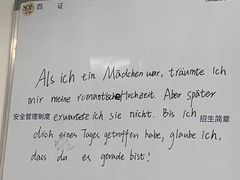 四 证
Als ich ein Mädchen war, träumte ich
mir meine romantische Hochzeit. Aber später
安全管理制度 erwartete ich sie nicht. Bis ich 招生简章
dich eines Tages getroffen habe, glaube ich,
dass du es gerade bist!